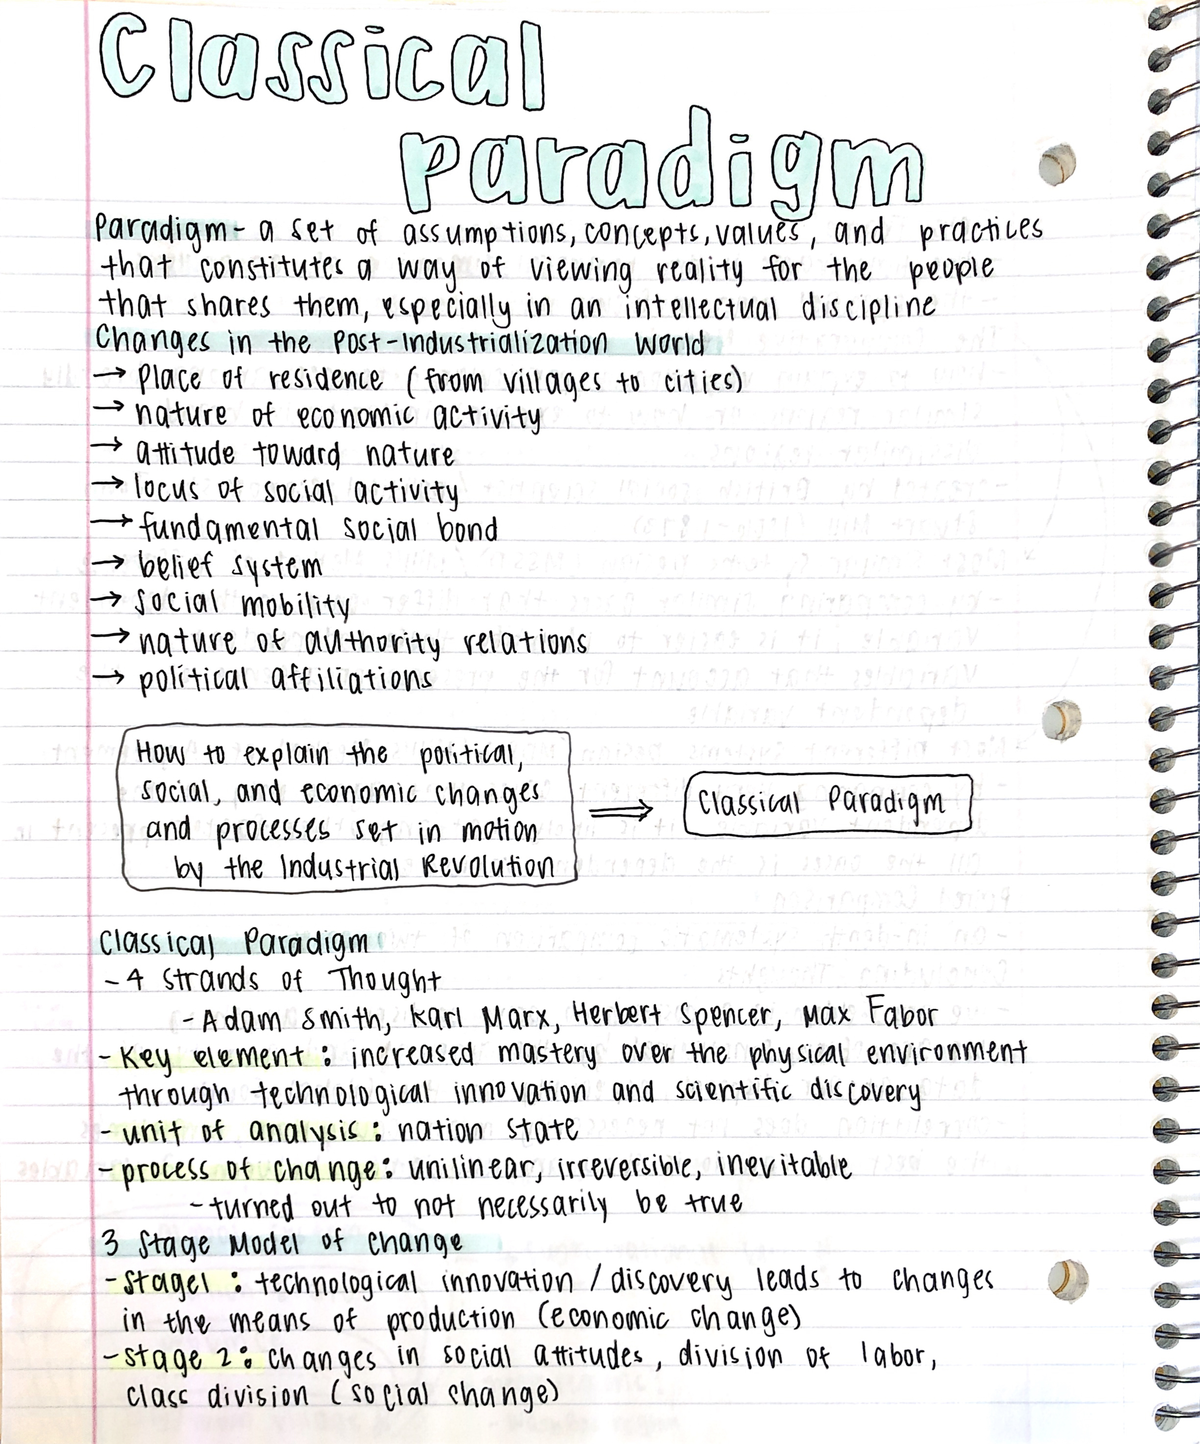 Classical
paradigm
Paradigm - a set of assumptions, concepts, values, and practices
that constitutes a way of viewing reality for the people
that shares them, especially in an intellectual discipline
Changes in the Post-Industrialization World
→ Place of residence (from villages to cities)
→ nature of economic activity
→ attitude toward nature
→ locus of social activity
→ fundamental social bond
→ belief system
→ social mobility
→ nature of authority relations
→ political affiliations
How to explain the political,
social, and economic changes
and processes set in motion
by the Industrial Revolution
⇒ Classical Paradigm
Classical Paradigm
- 4 Strands of Thought
- Adam Smith, Karl Marx, Herbert Spencer, Max Fabor
- Key element: increased mastery over the physical environment
through technological innovation and scientific discovery
- unit of analysis: nation state
- process of change: unilinear, irreversible, inevitable
- turned out to not necessarily be true
3 Stage Model of Change
- Stage 1: technological innovation / discovery leads to changes
in the means of production (economic change)
- Stage 2: changes in social attitudes, division of labor,
class division (social change)